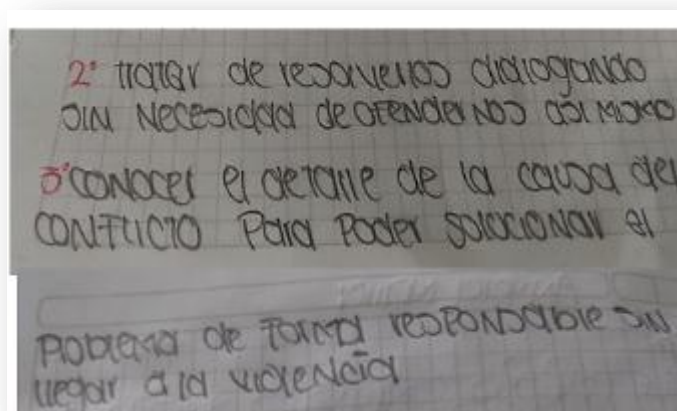 2° tratar de resolverlos dialogando
SIN Necesidad de ofenderNos asi MisMO
3° CONOCER el detalle de la causa del
CONFLICTO Para Poder solucioNar el
Poblema de forma responsable SIN
llegar a la violencia